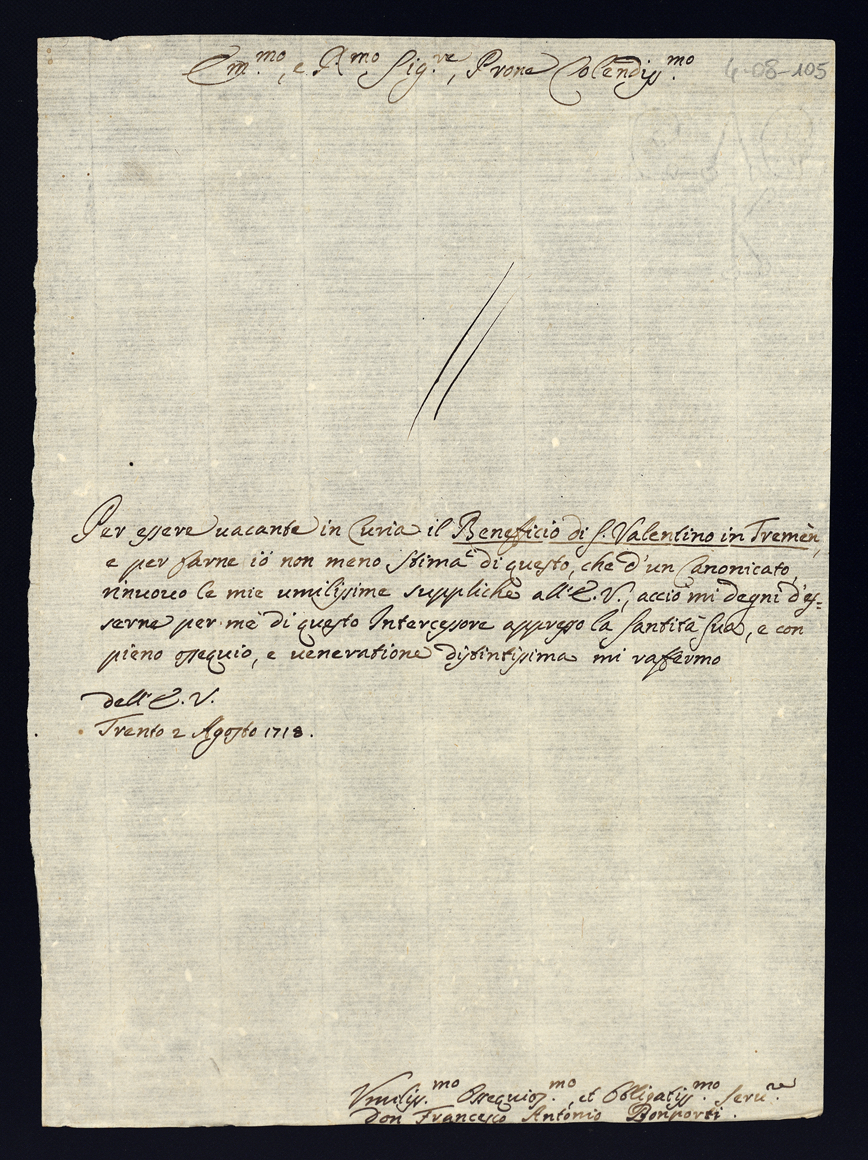 Em.mo, e R.mo Sig.re, Prone Colendiss.mo
4-08-105
Per essere vacante in Curia il Beneficio di S. Valentino in Tremèn,
e per farne iò non meno stima di questo, che d'un Canonicato,
rinuovo le mie umilissime suppliche all'E.V., acciò mi degni d'es=
serne per mè di questo Intercessore appresso la Santità Sua, e con
pieno ossequio, e veneratione distintissima mi raffermo
dell'E.V.
Trento 2 Agosto 1718.
Vmiliss.mo Ossequios.mo, et Obligatiss.mo Seru.re
Don Francesco Antonio Bonporti.